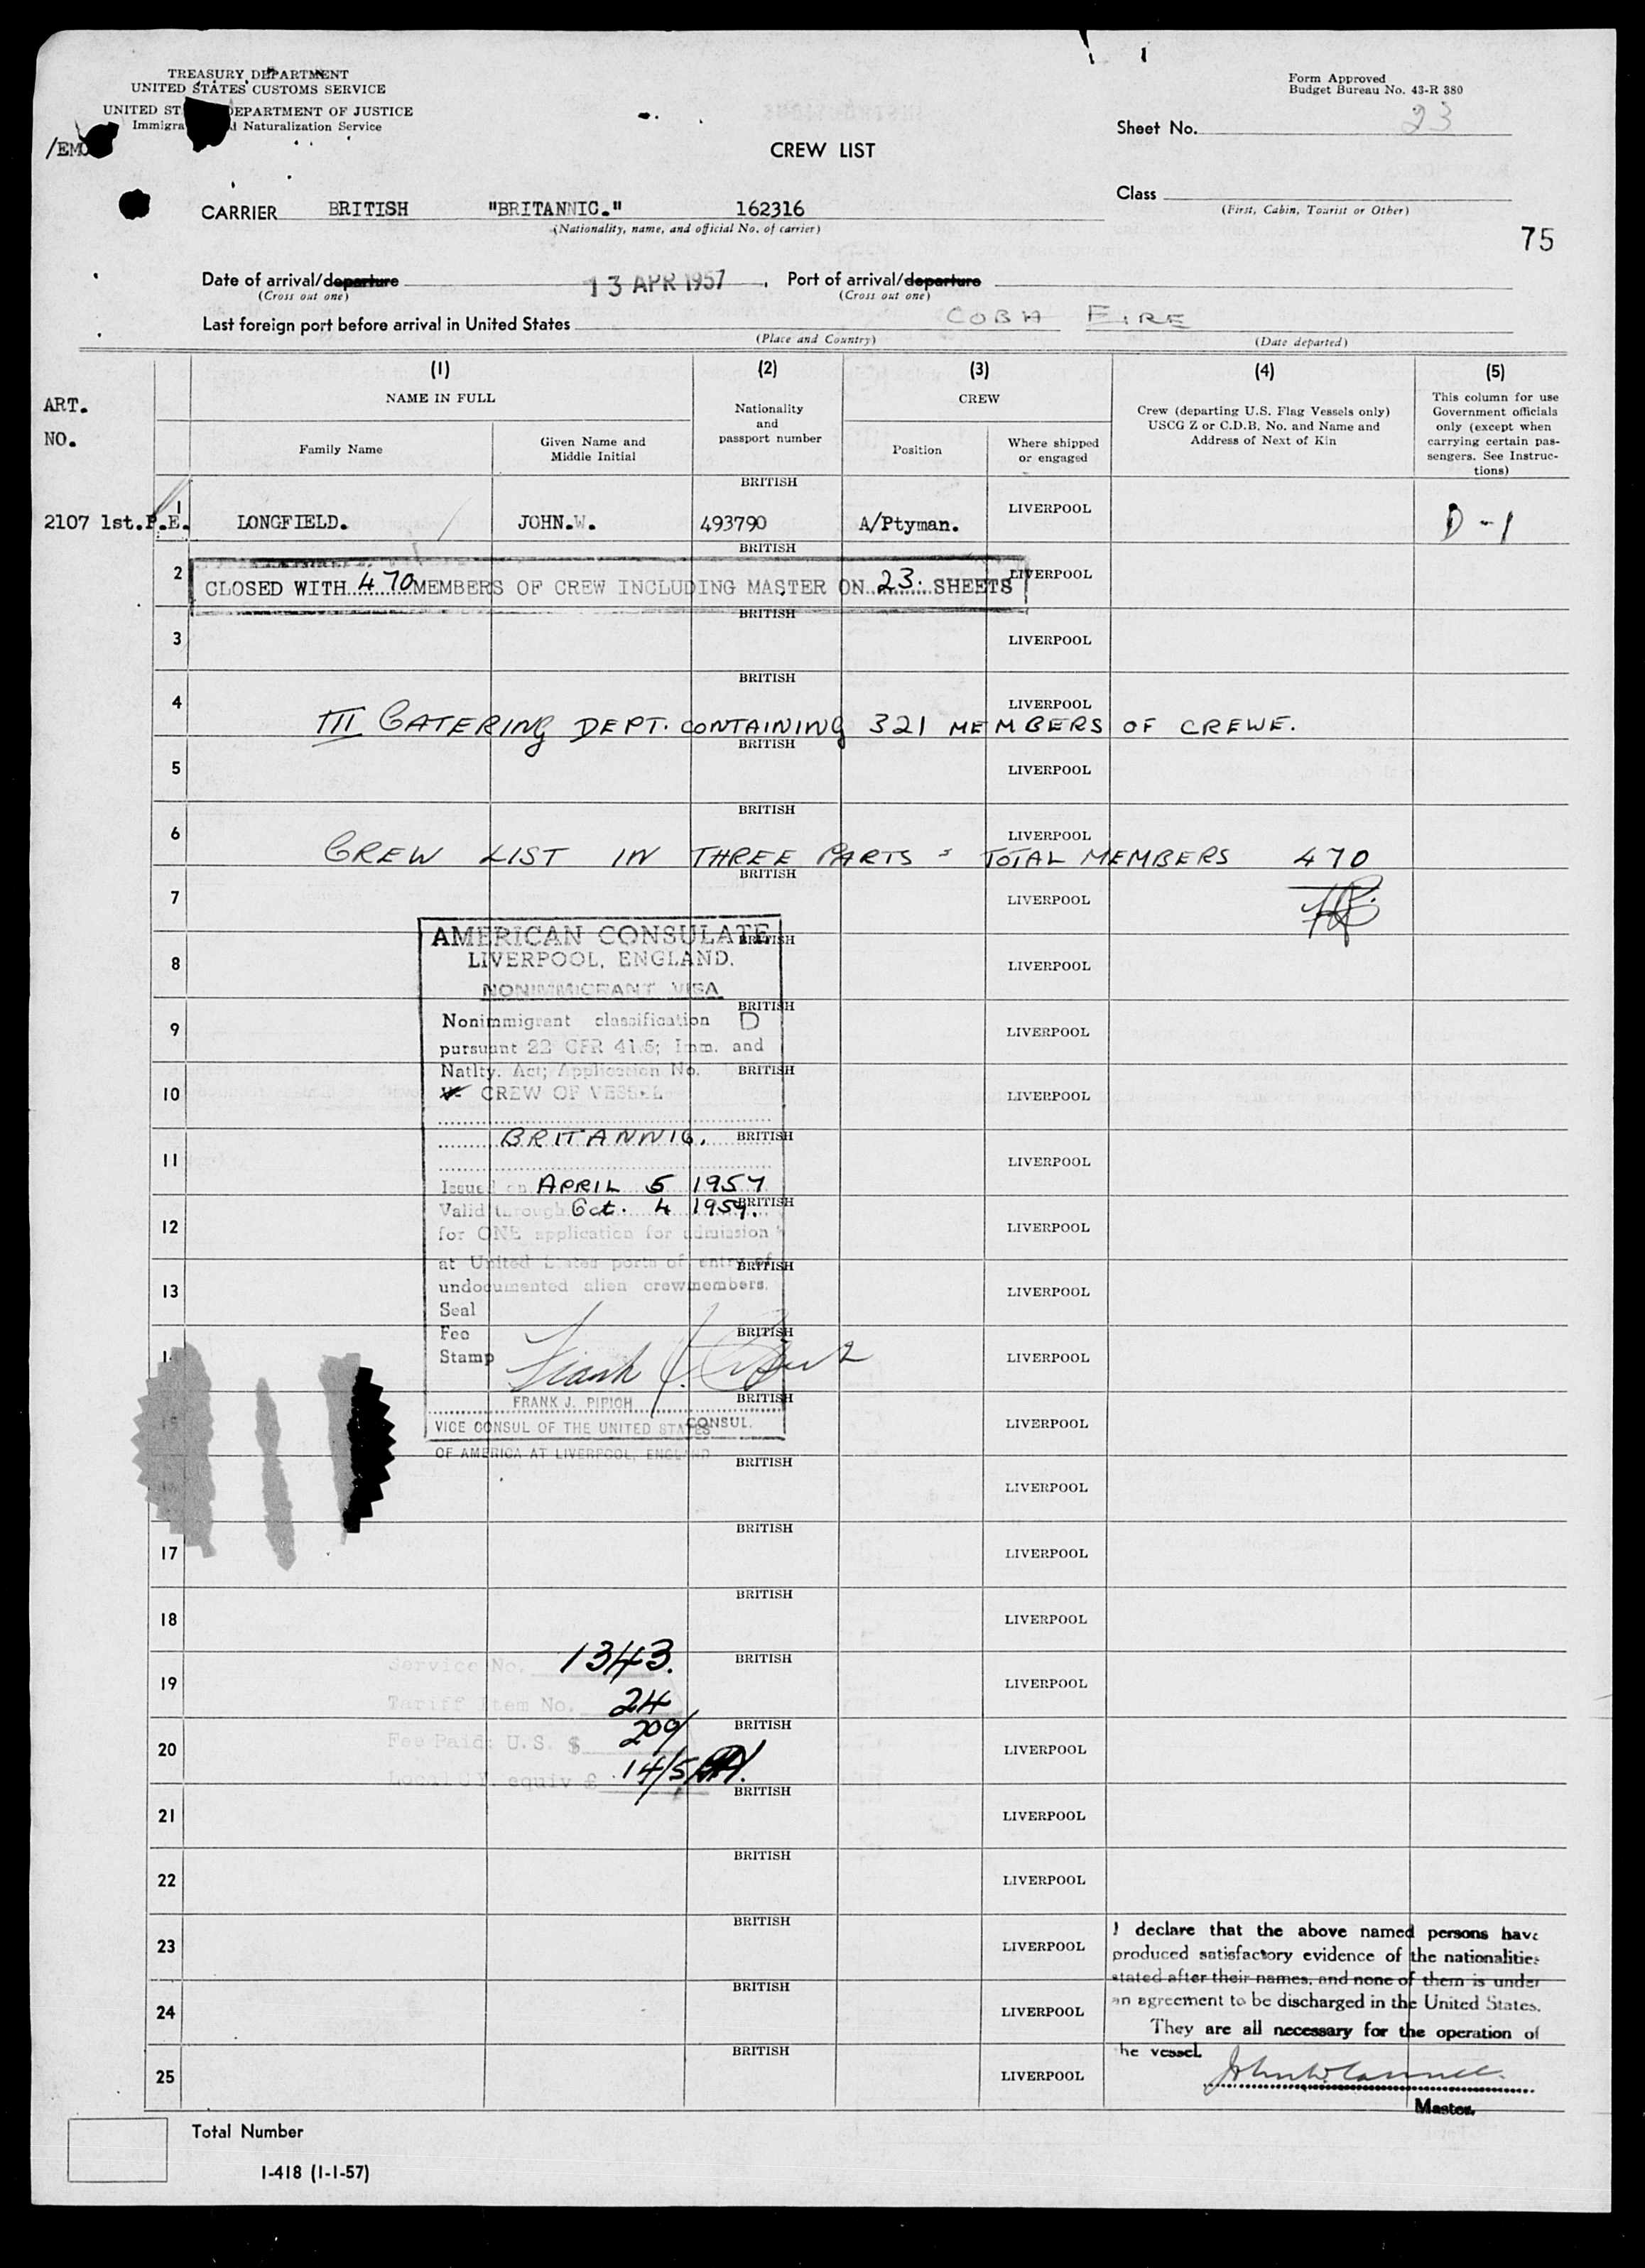 TREASURY DEPARTMENT
UNITED STATES CUSTOMS SERVICE
UNITED ST EPARTMENT OF JUSTICE
Immigra Naturalization Service
/EMO
Form Approved
Budget Bureau No. 43-R 380
Sheet No. 23
CREW LIST
Class
(First, Cabin, Tourist or Other)
CARRIER BRITISH "BRITANNIC." 162316
(Nationality, name, and official No. of carrier)
75
Date of arrival/departure 13 APR 1957 , Port of arrival/departure
(Cross out one) (Cross out one)
Last foreign port before arrival in United States COBH EIRE
(Place and Country) (Date departed)
ART.
NO.
(1) (2) (3) (4) (5)
NAME IN FULL
Family Name
Given Name and
Middle Initial
Nationality
and
passport number
CREW
Position
Where shipped
or engaged
Crew (departing U.S. Flag Vessels only)
USCG Z or C.D.B. No. and Name and
Address of Next of Kin
This column for use
Government officials
only (except when
carrying certain pas-
sengers. See Instruc-
tions)
BRITISH
2107 1st.P.E. 1 LONGFIELD. JOHN.W. 493790 A/Ptyman. LIVERPOOL D-1
BRITISH
2 LIVERPOOL
CLOSED WITH 470 MEMBERS OF CREW INCLUDING MASTER ON 23. SHEETS
BRITISH
3 LIVERPOOL
BRITISH
4 LIVERPOOL
III CATERING DEPT. CONTAINING 321 MEMBERS OF CREWE.
BRITISH
5 LIVERPOOL
BRITISH
6 LIVERPOOL
CREW LIST IN THREE PARTS = TOTAL MEMBERS 470
BRITISH
7 LIVERPOOL
AMERICAN CONSULATE
BRITISH
LIVERPOOL, ENGLAND.
8 LIVERPOOL
NONIMMIGRANT VISA
BRITISH
Nonimmigrant classification D
9 LIVERPOOL
pursuant 22 CFR 41.5; Imm. and
Natlty. Act; Application No.
BRITISH
10 LIVERPOOL
V- CREW OF VESSEL
BRITANNIC.
BRITISH
11 LIVERPOOL
Issued on APRIL 5 1957
Valid through Oct. 4 1957.
BRITISH
12 LIVERPOOL
for ONE application for admission
at United States ports of entry of
BRITISH
undocumented alien crewmembers.
13 LIVERPOOL
Seal
Fee
BRITISH
Stamp
14 LIVERPOOL
FRANK J. PIPICH
BRITISH
15 LIVERPOOL
VICE CONSUL OF THE UNITED STATES CONSUL.
OF AMERICA AT LIVERPOOL, ENGLAND
BRITISH
16 LIVERPOOL
BRITISH
17 LIVERPOOL
BRITISH
18 LIVERPOOL
Service No. 1343.
BRITISH
19 LIVERPOOL
Tariff Item No. 24
BRITISH
Fee Paid: U.S. $ 200/
20 LIVERPOOL
Local Cy. equiv £ 14/5
BRITISH
21 LIVERPOOL
BRITISH
22 LIVERPOOL
BRITISH
23 LIVERPOOL
BRITISH
24 LIVERPOOL
BRITISH
25 LIVERPOOL
I declare that the above named persons have
produced satisfactory evidence of the nationalities
stated after their names, and none of them is under
an agreement to be discharged in the United States.
They are all necessary for the operation of
he vessel.
Master.
Total Number
I-418 (1-1-57)